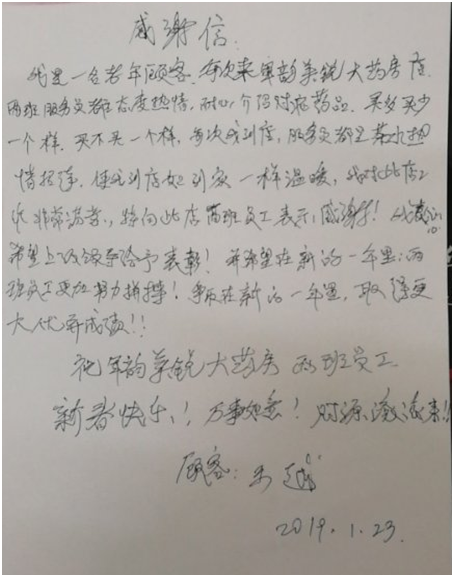 感谢信:
我是一名老年顾客.每次来军彭美锐大药房店.
两班服务员都态度热情,耐心介绍对症药品.买多买少
一个样.买不买一个样,每次我到店,服务员都是茶水热
情招待.使我到店如到家一样温暖,我对此店
非常满意,特向此店两班员工表示感谢!我
希望上级领导给予表彰!并希望在新的一年里:两
班员工更加努力拼搏!争取在新的一年里,取得更
大优异成绩!!
祝 美锐大药房 两班员工
新春快乐!!万事如意!财源滚滚来!!
顾客:
2019.1.23.